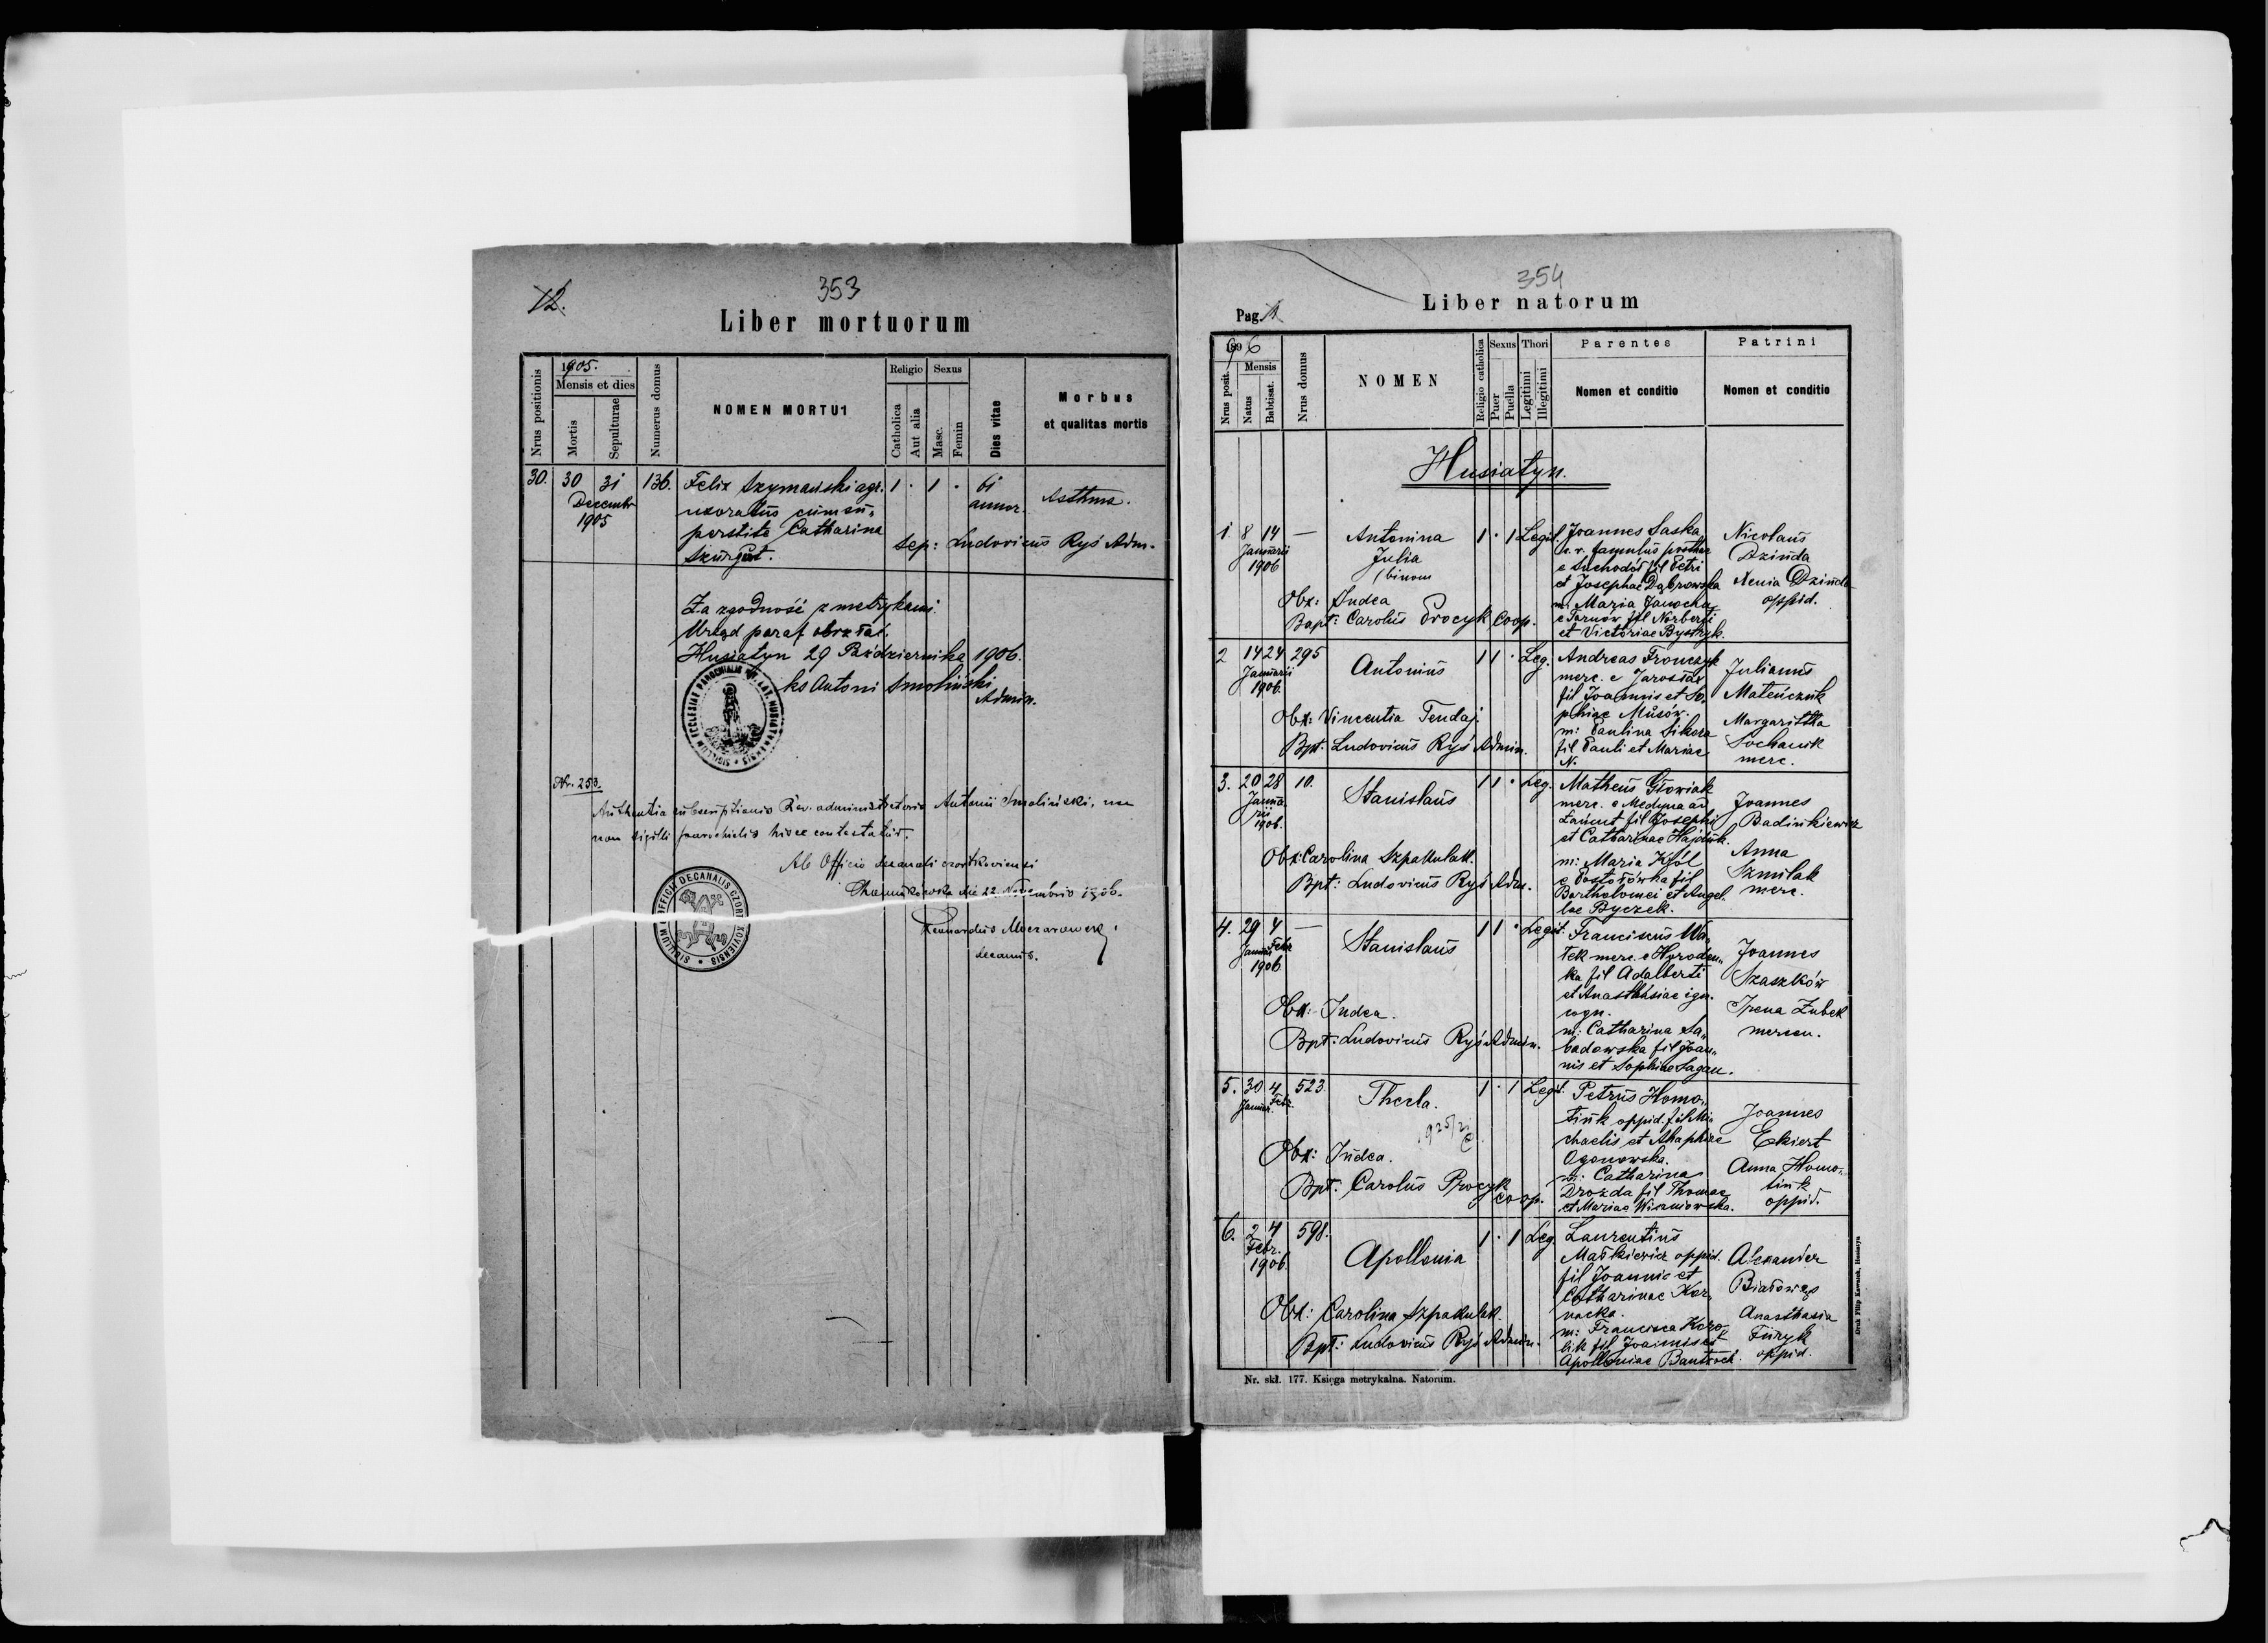 353
12.
Liber mortuorum
Nrus positionis
1905.
Mensis et dies
Mortis
Sepulturae
Numerus domus
NOMEN MORTU1
Religio
Catholica
Aut alia
Sexus
Masc.
Femin
Dies vitae
Morbus
et qualitas mortis
30. 30 31 136. Felix Szymański agr. 1 · 1 · 61
Decembr uxoratus cum su„ annor. Asthma.
1905 perstite Catharina
Szurgot. Sep: Ludovicus Ryś Adm.
Za zgodność z metrykami.
Urząd paraf obrz łać.
Husiatyn 29 Października 1906.
ks Antoni Smoliński
Admin.
SIGILLUM ECCLESIAE PAROCHIALIS RIT. LAT. HUSIATYNENSIS
Nr. 253.
Authentia subscriptionis Rev. administratoris Antonii Smoliński, nec
non sigilli parochialis hisce contestatur.
Ab Officio decanali czortkoviensi
die 22 Novembris 1906.
decanus.
SIGILLUM OFFICII DECANALIS CZORTKOVIENSIS
354
Liber natorum
Pag. 1
1906
Nrus posit.
Mensis
Natus
Babtisat.
Nrus domus
NOMEN
Religio catholica
Sexus
Puer
Puella
Thori
Legitimi
Illegitimi
Parentes
Nomen et conditio
Patrini
Nomen et conditio
Husiatyn.
1. 8 14 — Antonina 1 · 1 Legit. Joannes Saska
Januarii Julia
1906 binom
e Suchodół fil Petri
et Josephae Dąbrowska
m. Maria Janocha
e Tarnów fil Norberti
et Victoriae Bystryk.
Nicolaus
Dzinda
Xenia Dzinda
oppid.
Obx: Judea
Bapt: Carolus Procyk Coop.
2 14 24 295 Antonius 1 1 · Leg. Andreas Fronczyk
Januarii
1906.
merc. e Jarosław
fil Joannis et So„
phiae Musów.
m: Paulina Sikora
fil Pauli et Mariae
N.
Julianus
Mateńczuk
Margaritha
Sochanik
merc.
Obx: Vincentia Tendaj.
Bpt: Ludovicus Ryś Admin.
3. 20 28 10. Stanislaus 1 1 · Leg. Matheus Głowiak
Janua„
rii
1906.
merc. e Medyna ad
Łańcut fil Josephi
et Catharinae Hajduk.
m: Maria Król
e Postołówka fil
Bartholomei et Angel„
lae Byczek.
Joannes
Badinkiewicz
Anna
Szmilak
merc.
Obx: Carolina Szpakulak.
Bpt: Ludovicus Ryś Adm.
4. 29 4 — Stanislaus 1 1 · Legit. Franciscus Wą„
Januar Febr
1906
tek merc. e Horoden„
ka fil Adalberti
et Anasthasiae ign.
cogn.
m: Catharina Sa„
badowska fil Joan„
nis et Sophiae Sagan.
Joannes
Szaszków
Irena Zubek
mercen.
Obx: Judea.
Bpt: Ludovicus Ryś Admin.
5. 30 4 523 Thecla. 1 · 1 Legit. Petrus Homo„
Januar. Febr.
tiuk oppid. fil Mi„
chaelis et Ahaphiae
Ogonowska.
m: Catharina
Drozda fil Thomae
et Mariae Wiszniowska.
Joannes
Ekiert
Anna Homo„
tiuk
oppid.
Obx: Judea.
Bpt: Carolus Procyk
coop.
6. 2 4 598. Apollonia 1 · 1 Leg. Laurentius
Febr.
1906.
Maśkiewicz oppid.
fil Joannis et
Catharinae Kor„
nacka.
m: Francisca Koro„
lik fil Joannis et
Apolloniae Bantroch.
Alexander
Białowąs
Anasthasia
Furyk
oppid.
Obx: Carolina Szpakulak.
Bpt: Ludovicus Ryś Admin.
Nr. skł. 177. Księga metrykalna. Natorum.
Druk Filip Kawasek, Husiatyn